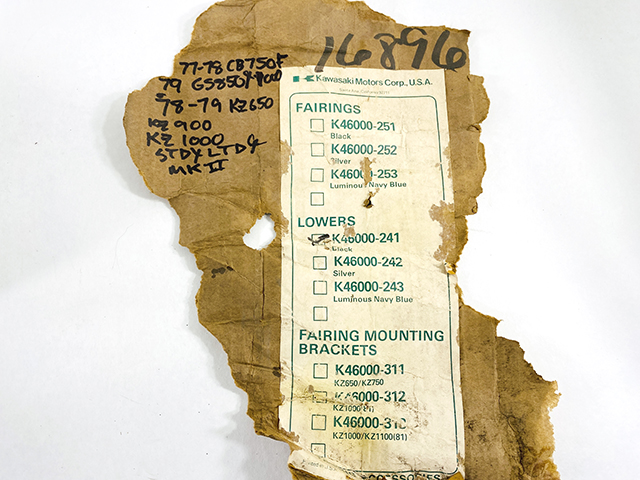 16896
77-78 CB750F
79 GS850/1000
78-79 KZ650
KZ 900
KZ 1000
STDX LTD &
MK II
Kawasaki Motors Corp., U.S.A.
FAIRINGS
K46000-251
Black
K46000-252
Silver
K46000-253
Luminous Navy Blue
LOWERS
K46000-241
Black
K46000-242
Silver
K46000-243
Luminous Navy Blue
FAIRING MOUNTING
BRACKETS
K46000-311
KZ650/KZ750
K46000-312
KZ1000(81)
K46000-313
KZ1000/KZ1100(81)
ACCESSORIES